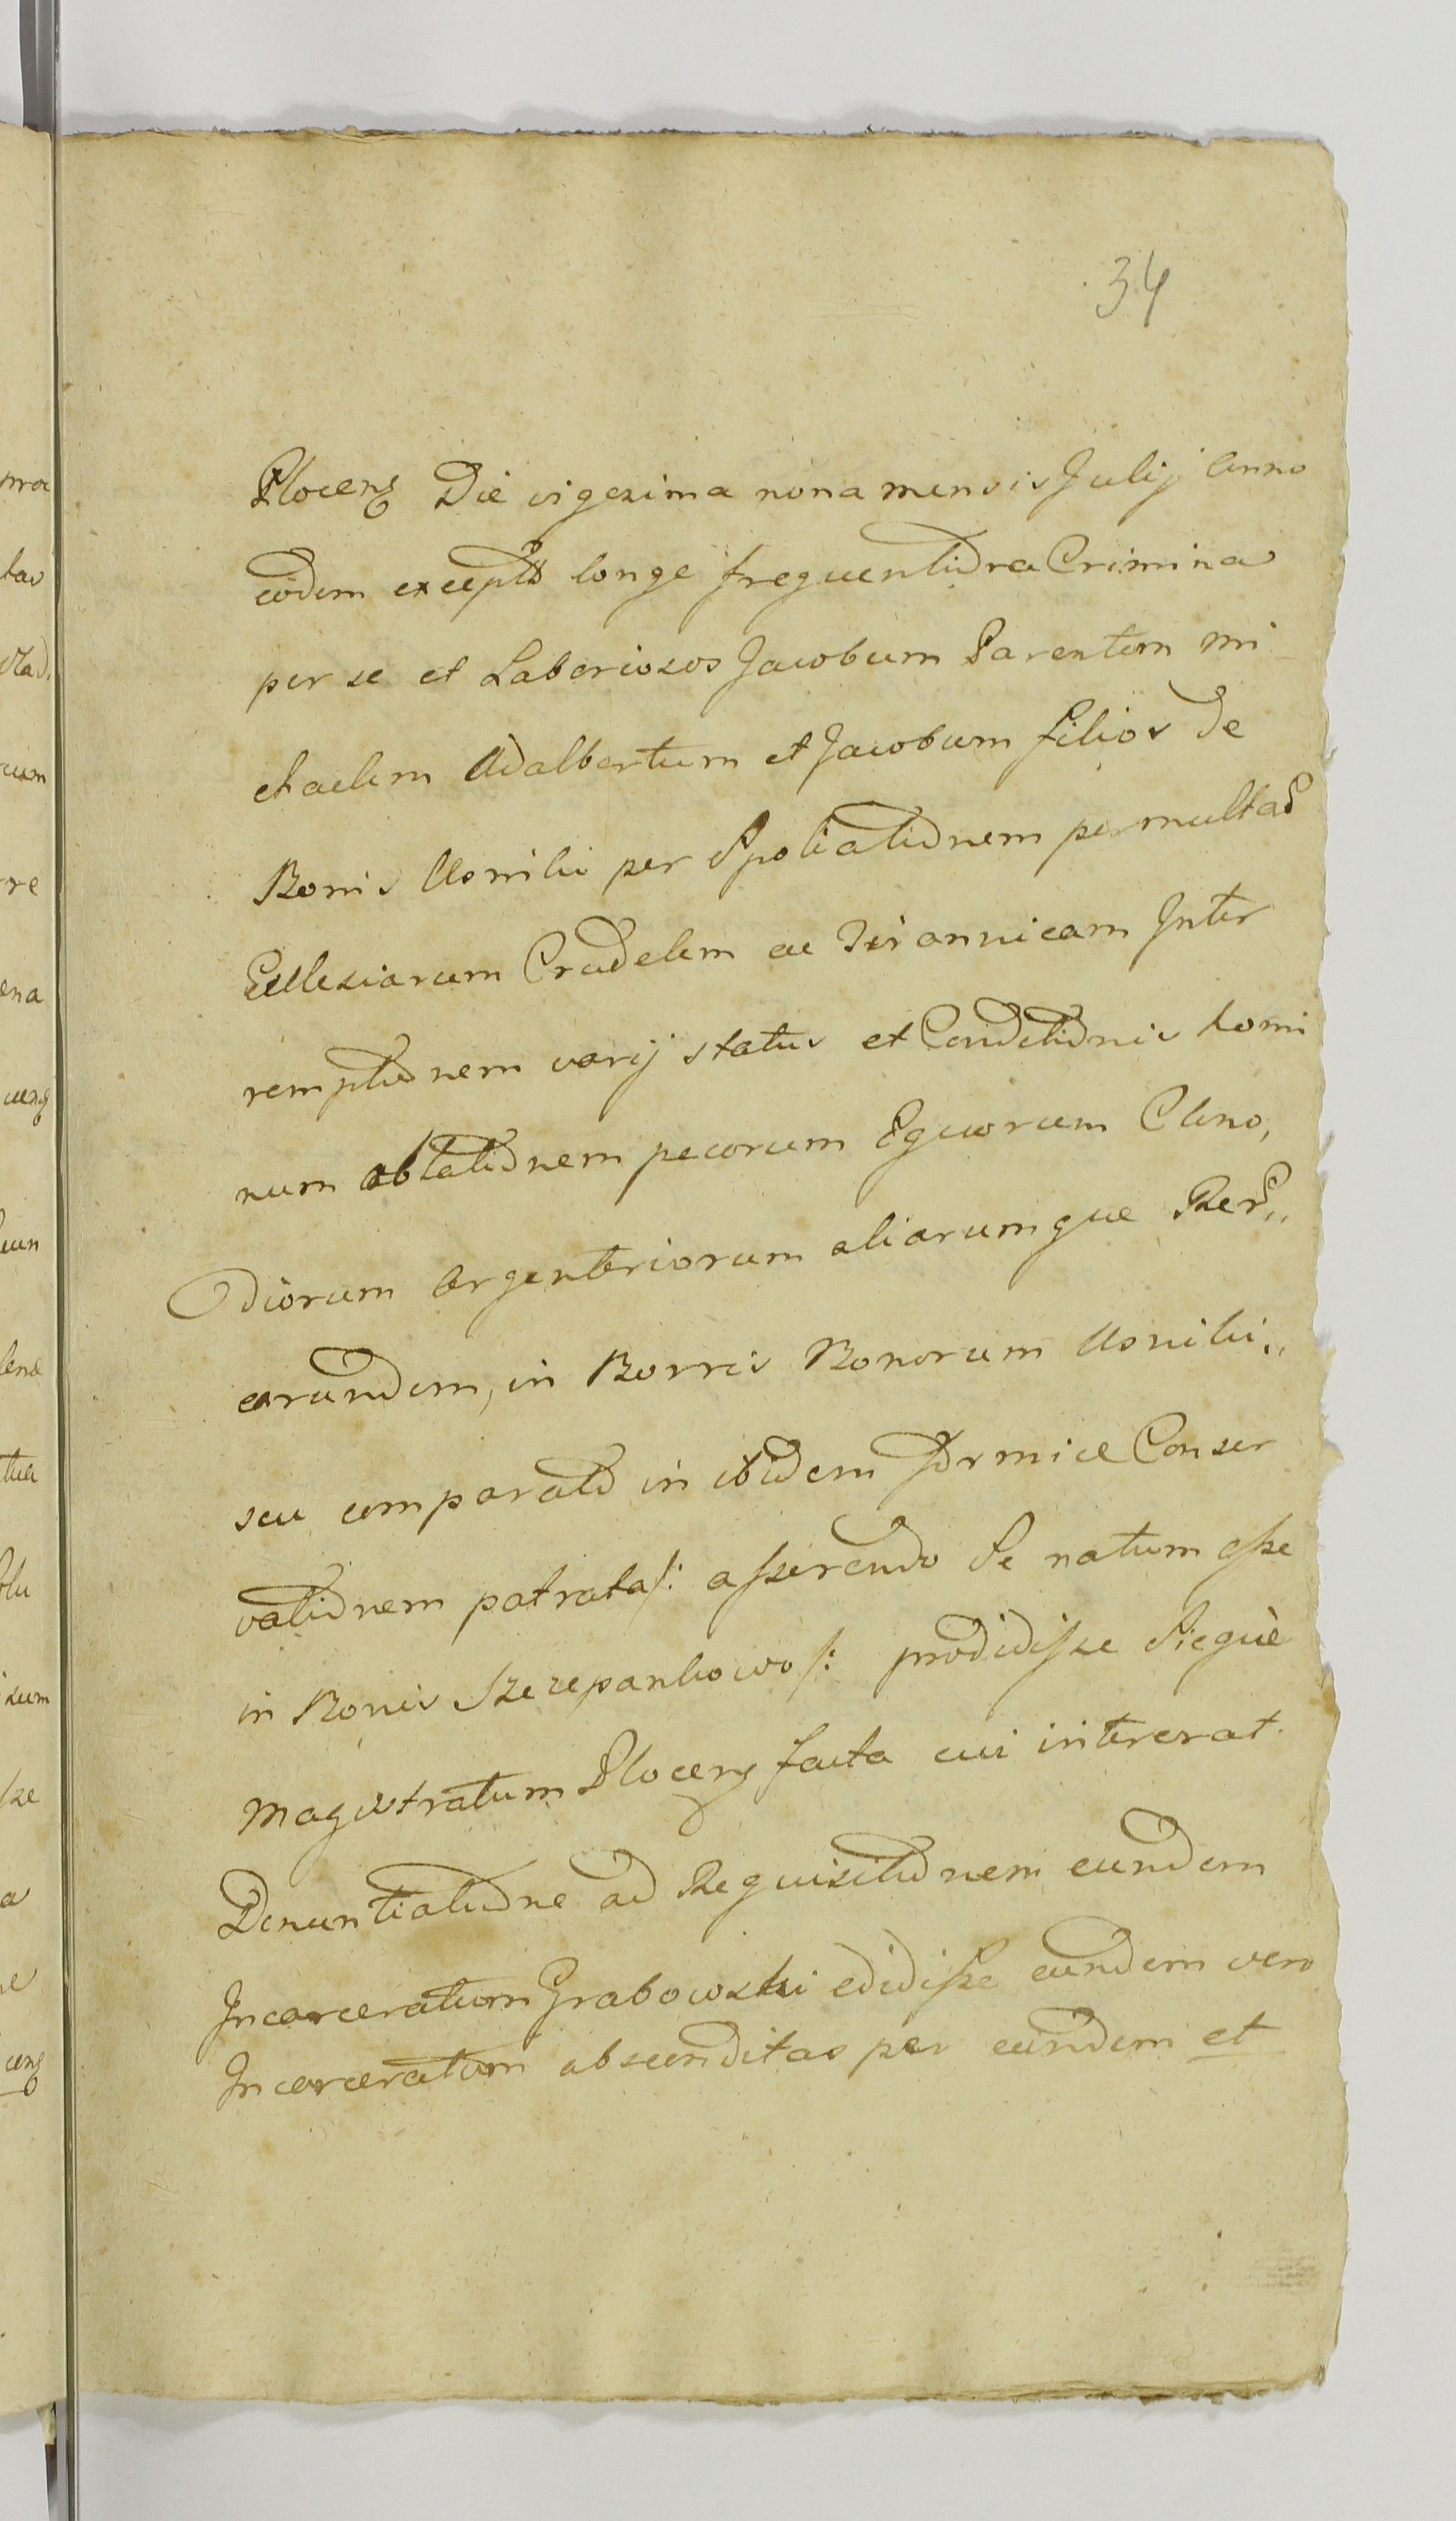 34
Plocens Die vigezima nona mensis Julij Anno
eodem excepto longe frequentiora Crimina
per se et Laboriosos Jacobum Parentem Mi
chaelem Adalbertum et Jacobum filios de
Bonis Usnilu per Spoliationem permultas
Ecclesiarum Crudelem ac Tirannicam Inter
remptionem varij status et Conditionis homi
num ablationem pecorum Equorum Cleno,
diorum Argenteriorum aliarumque Rer,,
earundem, in Borris Bonorum Usnilu,,
seu comparato in ibidem Formice Conser
vationem patrata/: asserendo Se natum esse
in Bonis Szczepankowo/: prodidisse Sicque
Magistratum Plocens facta cui intererat
Denuntiatione ad Requisitionem eundem
Incarceratum Grabowski edidisse eundem vero
Incarceratum absconditas per eundem et